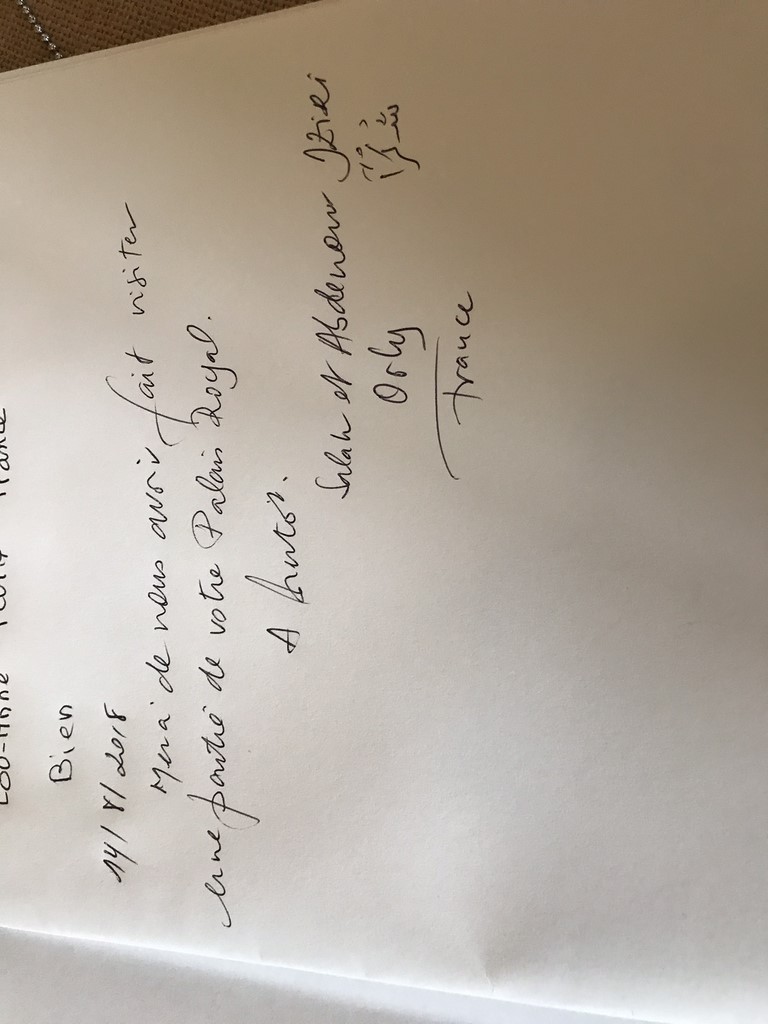 Bien
14/8/2018
Merci de nous avoir fait visiter
une partie de votre Palais Royal.
A
Salah et Abdenour Iziki
Orly
France